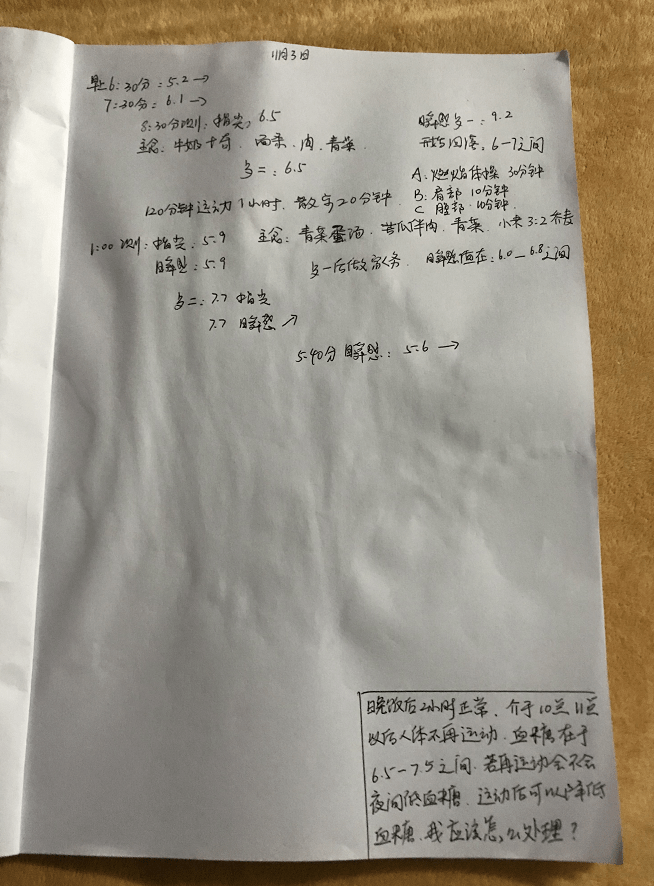 11月3日
早上6:30分:5.2→
7:30分:6.1→
8:30分测:指尖,6.5 瞬感多一:9.2
主食:牛奶 西柰、肉、青菜 回落,6-7之间
多二:6.5
A:燃烧体操 30分钟
120分钟运动1小时、散步20分钟 B:肩部 10分钟
C 腿部 10分钟
1:00 测:指尖,5.9 主食:青菜蛋汤、苦瓜伴肉、青菜、小米3:2
瞬感:5.9 多一后做家务、瞬感值在:6.0-6.8之间
多二:7.7 指尖
7.7 瞬感↗
5:40分 瞬感:5.6→
晚饭后2小时正常、介于10点11点
以后人体不再运动、血糖在于
6.5-7.5之间、若再运动会不会
夜间低血糖、运动后可以降低
血糖、我应该怎么处理?